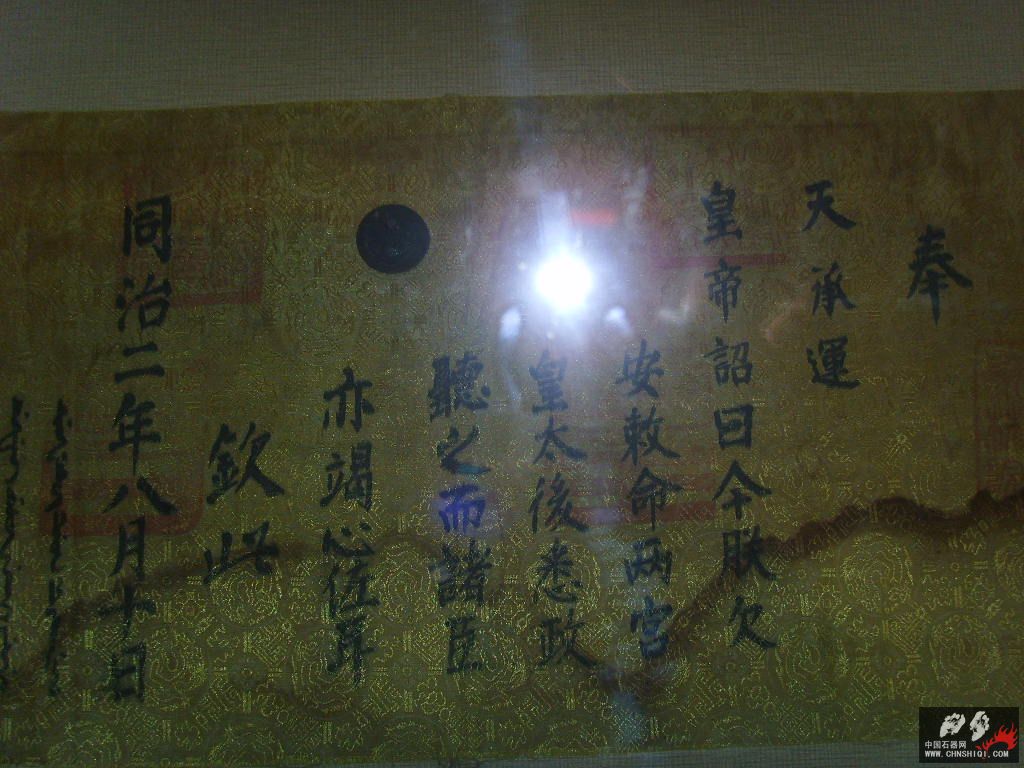 奉
天承運
皇帝詔曰今朕欠
安敕命两宫
皇太後悉政
聽之而諸臣
亦竭心佐耳
欽此
同治二年八月十日
中国石器网
WWW.CHNSHIQI.COM